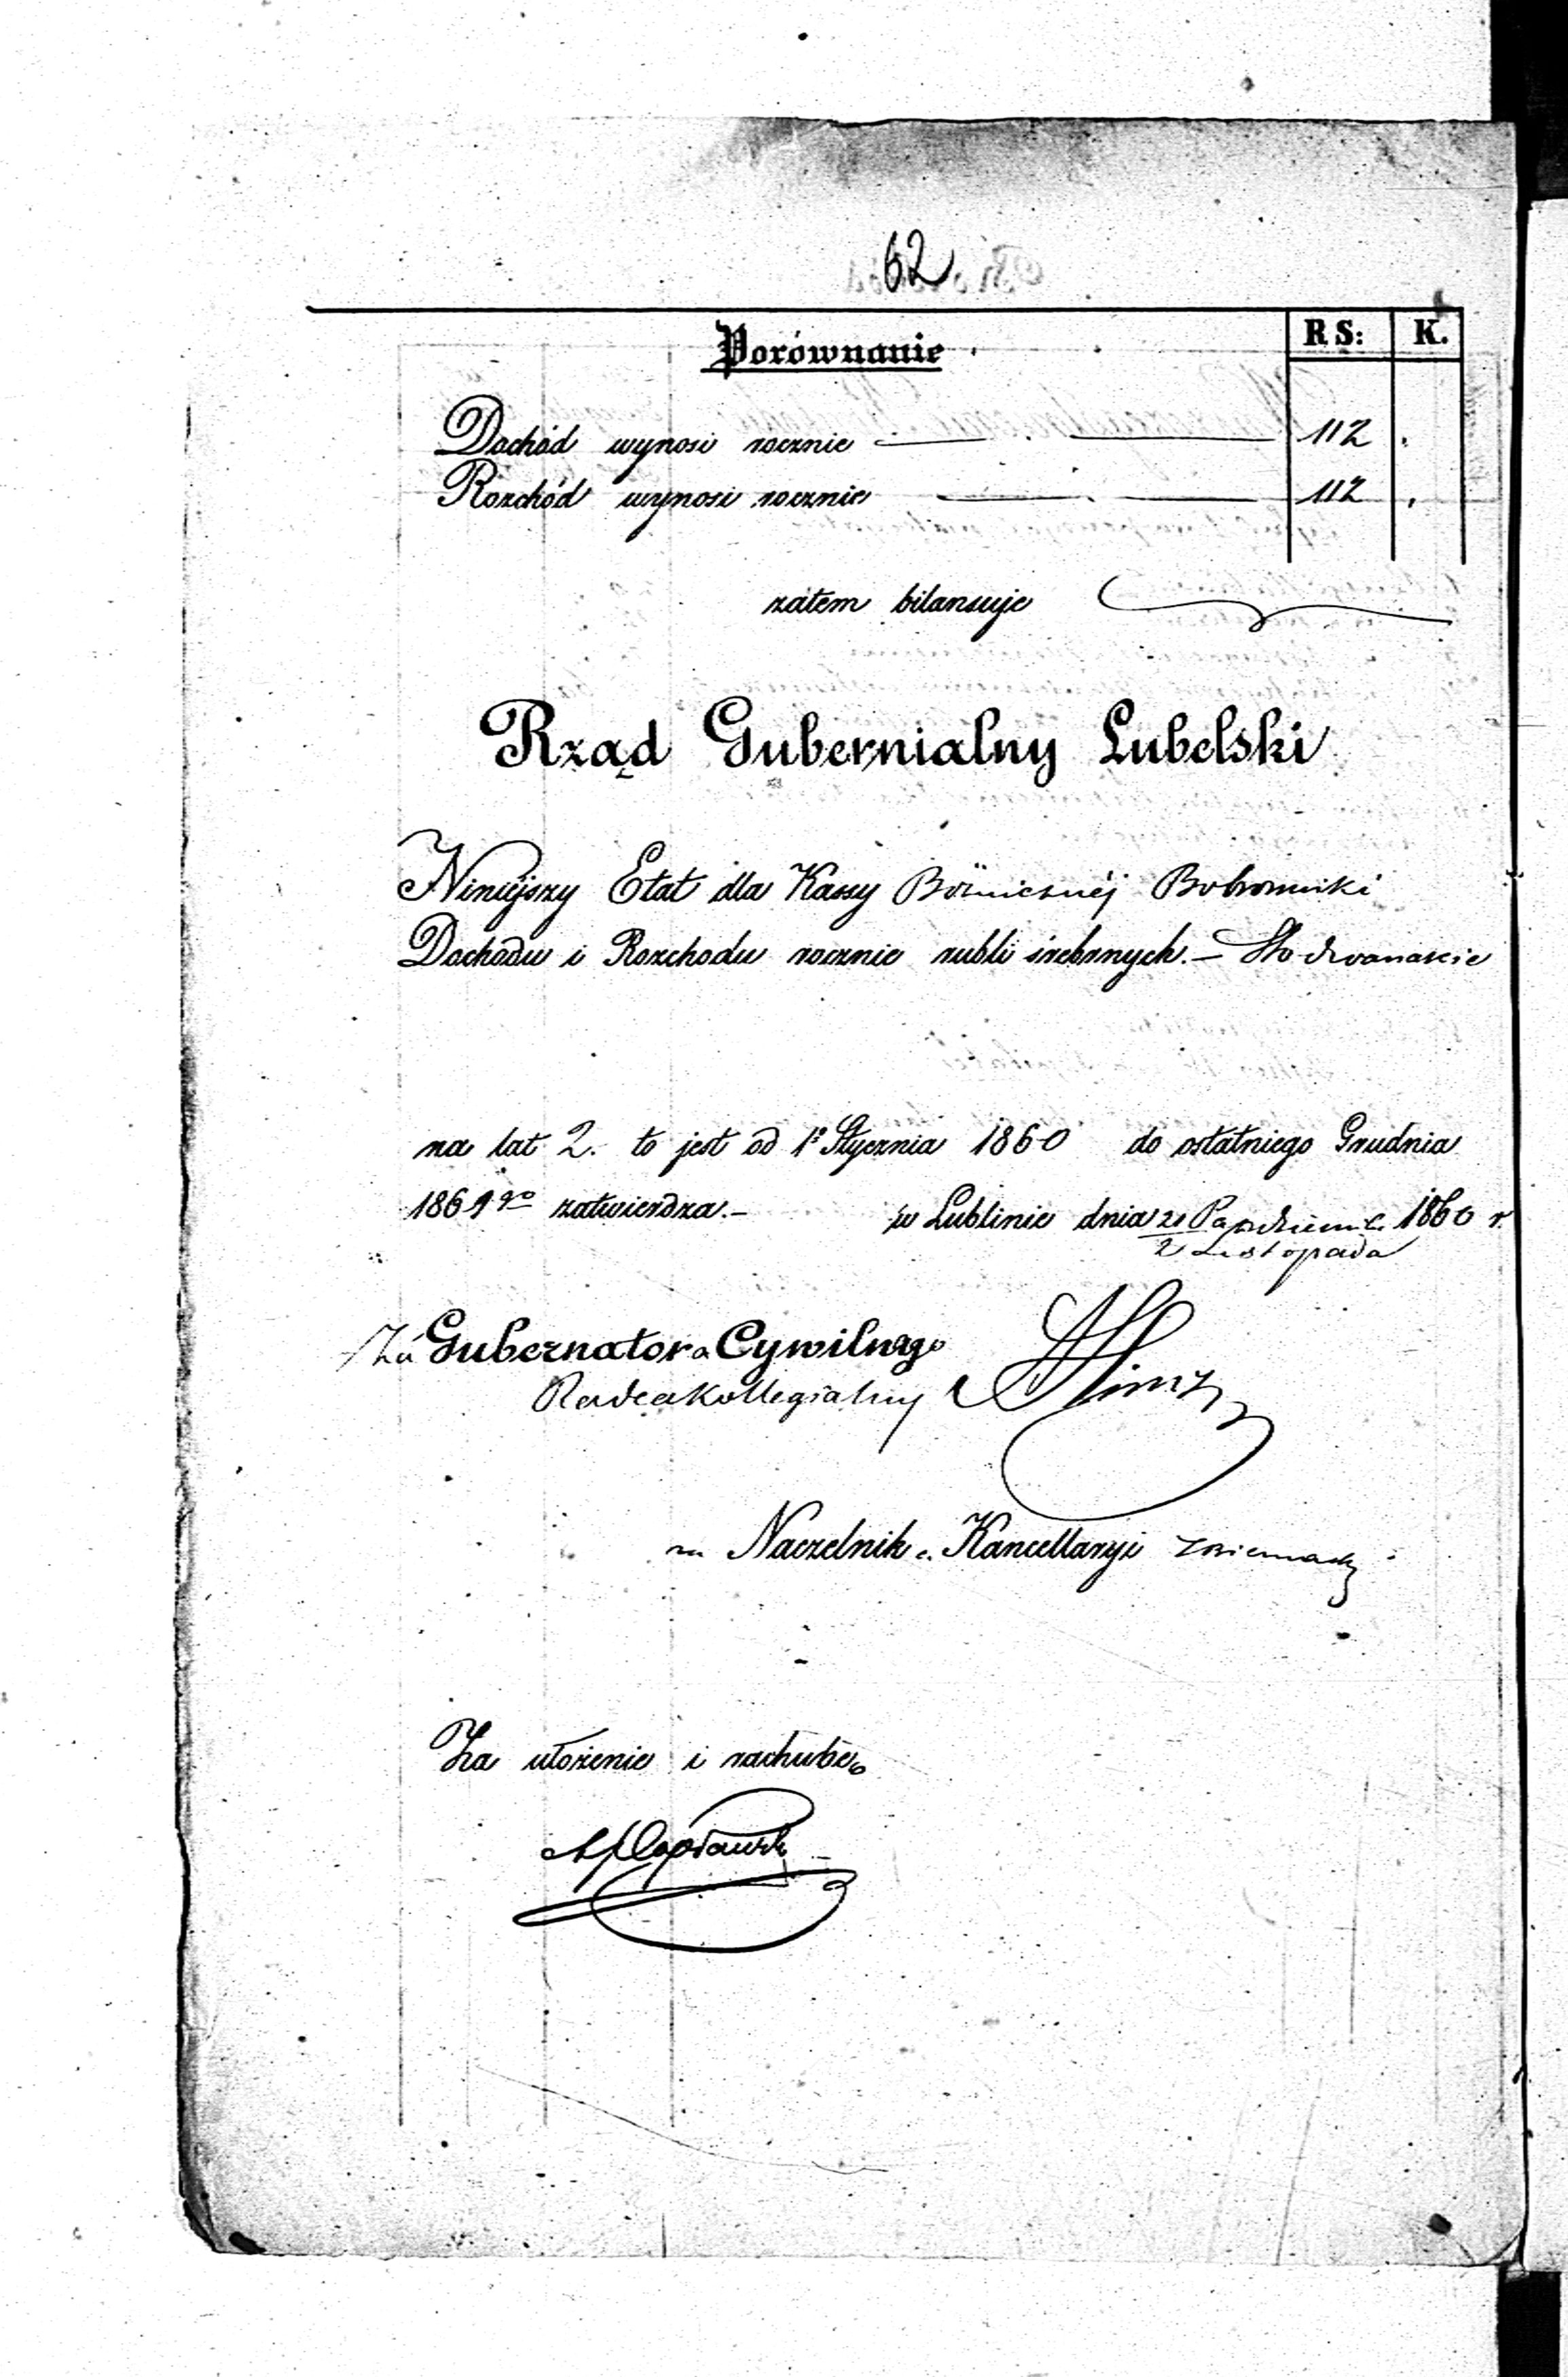 62
Porównanie RS: K.
Dochód wynosi rocznie 112 .
Rozchód wynosi rocznie 112 .
zatem bilansuje
Rząd Gubernialny Lubelski
Niniejszy Etat dla Kassy Bóżnicznéj Bobrowniki
Dochodu i Rozchodu rocznie rubli śrebrnych. – Sto dwanaście
na lat 2. to jest od 1º Stycznia 1860 do ostatniego Grudnia
1861 go zatwierdza. – w Lublinie dnia Październ. 1860 r.
2 Listopada
Za Gubernatora Cywilnego
Radca Kollegialny
Naczelnik Kancellaryi
Za ułożenie i rachubę